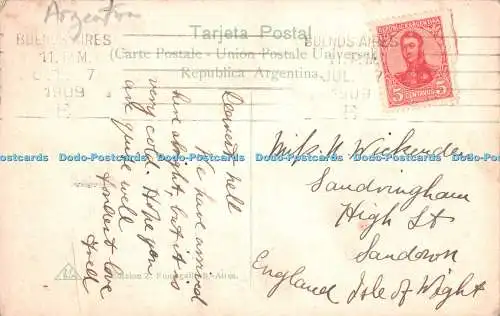 Argentina
Tarjeta Postal
(Carte Postale - Union Postale Universelle)
Republica Argentina
BUENOS AIRES
11. P.M.
JUL 7
1909
BUENOS AIRES
JUL 7
1909
REPUBLICA ARGENTINA
5 CENTAVOS 5
Dearest Nell
We have arrived
here alright but it is
very cold. Hope you
are quite well
Fondest love
Fred
Miss N Wickenden
Sandringham
High St
Sandown
England Isle of Wight
Z. Fumagalli, B.-Aires.
Dodo-Postcards Dodo-Postcards Dodo-Postcards Dodo-Postcards Dodo-Postcards